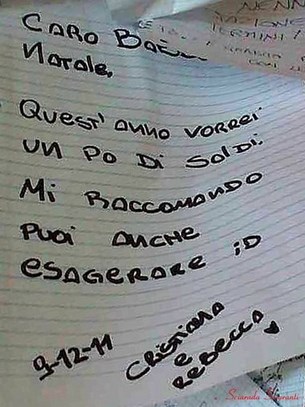 CARO
NATALE,
QUEST'ANNO VORREI
UN PO DI SOLDI.
MI RACCOMANDO
PUOI ANCHE
ESAGERARE ;D
9-12-11
CRISTIANA
E
REBECCA ♥